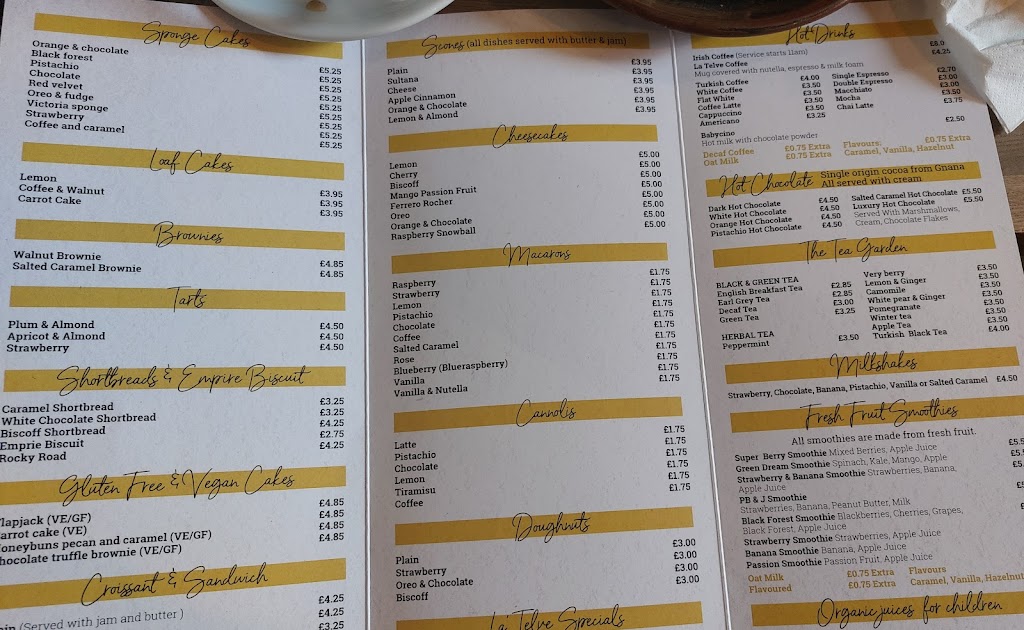 Sponge Cakes
Orange & chocolate £5.25
Black forest £5.25
Pistachio £5.25
Chocolate £5.25
Red velvet £5.25
Oreo & fudge £5.25
Victoria sponge £5.25
Strawberry £5.25
Coffee and caramel £5.25
Loaf Cakes
Lemon £3.95
Coffee & Walnut £3.95
Carrot Cake £3.95
Brownies
Walnut Brownie £4.85
Salted Caramel Brownie £4.85
Tarts
Plum & Almond £4.50
Apricot & Almond £4.50
Strawberry £4.50
Shortbreads & Empire Biscuit
Caramel Shortbread £3.25
White Chocolate Shortbread £3.25
Biscoff Shortbread £4.25
Emprie Biscuit £2.75
Rocky Road £4.25
Gluten Free & Vegan Cakes
lapjack (VE/GF) £4.85
arrot cake (VE) £4.85
oneybuns pecan and caramel (VE/GF) £4.85
hocolate truffle brownie (VE/GF) £4.85
Croissant & Sandwich
£4.25
ain (Served with jam and butter ) £4.25
£3.25
Scones (all dishes served with butter & jam)
Plain £3.95
Sultana £3.95
Cheese £3.95
Apple Cinnamon £3.95
Orange & Chocolate £3.95
Lemon & Almond £3.95
Cheesecakes
Lemon £5.00
Cherry £5.00
Biscoff £5.00
Mango Passion Fruit £5.00
Ferrero Rocher £5.00
Oreo £5.00
Orange & Chocolate £5.00
Raspberry Snowball £5.00
Macarons
Raspberry £1.75
Strawberry £1.75
Lemon £1.75
Pistachio £1.75
Chocolate £1.75
Coffee £1.75
Salted Caramel £1.75
Rose £1.75
Blueberry (Blueraspberry) £1.75
Vanilla £1.75
Vanilla & Nutella £1.75
Cannolis
Latte £1.75
Pistachio £1.75
Chocolate £1.75
Lemon £1.75
Tiramisu £1.75
Coffee £1.75
Doughnuts
Plain £3.00
Strawberry £3.00
Oreo & Chocolate £3.00
Biscoff £3.00
La' Telve Specials
Hot Drinks
Irish Coffee (Service starts 11am) £8.0
La Telve Coffee £4.25
Mug covered with nutella, espresso & milk foam
Turkish Coffee £4.00 Single Espresso £2.70
White Coffee £3.50 Double Espresso £3.00
Flat White £3.50 Macchiato £3.00
Coffee Latte £3.50 Mocha £3.50
Cappuccino £3.50 Chai Latte £3.75
Americano £3.25
Babycino £2.50
Hot milk with chocolate powder
Decaf Coffee £0.75 Extra Flavours: £0.75 Extra
Oat Milk £0.75 Extra Caramel, Vanilla, Hazelnut
Hot Chocolate Single origin cocoa from Gnana
All served with cream
Dark Hot Chocolate £4.50 Salted Caramel Hot Chocolate £5.50
White Hot Chocolate £4.50 Luxury Hot Chocolate £5.50
Orange Hot Chocolate £4.50 Served With Marshmallows,
Pistachio Hot Chocolate £4.50 Cream, Chocolate Flakes
The Tea Garden
BLACK & GREEN TEA Very berry £3.50
English Breakfast Tea £2.85 Lemon & Ginger £3.50
Earl Grey Tea £2.85 Camomile £3.50
Decaf Tea £3.00 White pear & Ginger £3.50
Green Tea £3.25 Pomegranate £3.50
Winter tea £3.50
HERBAL TEA Apple Tea £3.50
Peppermint £3.50 Turkish Black Tea £4.00
Milkshakes
Strawberry, Chocolate, Banana, Pistachio, Vanilla or Salted Caramel £4.50
Fresh Fruit Smoothies
All smoothies are made from fresh fruit.
Super Berry Smoothie Mixed Berries, Apple Juice
Green Dream Smoothie Spinach, Kale, Mango, Apple
Strawberry & Banana Smoothie Strawberries, Banana,
Apple Juice
PB & J Smoothie
Strawberries, Banana, Peanut Butter, Milk
Black Forest Smoothie Blackberries, Cherries, Grapes,
Black Forest, Apple Juice
Strawberry Smoothie Strawberries, Apple Juice
Banana Smoothie Banana, Apple Juice
Passion Smoothie Passion Fruit, Apple Juice
Oat Milk £0.75 Extra Flavours
Flavoured £0.75 Extra Caramel, Vanilla, Hazelnut
Organic juices for children